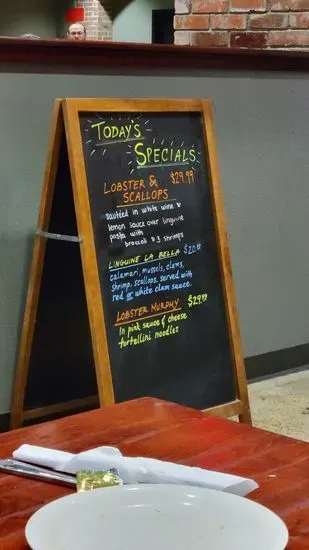 TODAY'S
SPECIALS
LOBSTER & $29.99
SCALLOPS
sautéed in white wine &
lemon sauce over linguine
pasta with
broccoli & 3 shrimps
LINGUINE LA BELLA
calamari, mussels, clams,
shrimp, scallops, served with
red or white clam sauce.
LOBSTER MURPHY $29.99
In pink sauce & cheese
tortellini noodles